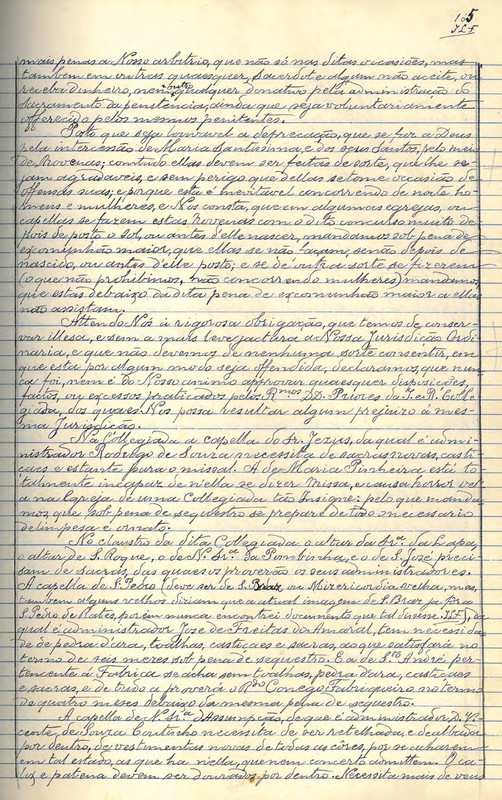 165
JLF
mais penas a Nosso arbitrio, que não só nas ditas occasiões, mas
tambem em outras quaesquer, Sacerdote algum não aceite, ou
receba dinheiro, nem outro qualquer donativo pela administração do
Sacramento da penitencia, ainda que seja voluntariamente
offerecido pelos mesmos penitentes.
Posto que seja louvavel a deprecação, que se faz a Deus
pela intercessão de Maria Santissima, e dos seus Santos, pelo meio
de Novenas; comtudo ellas devem ser feitas de sorte, que lhe se-
jam agradaveis, e sem perigo que d'ellas se tome occasião de
offensas suas; e porque esta é inevitavel concorrendo de noite ho-
mens e mulheres, e Nos consta, que em algumas egrejas, ou
capellas se fazem estas Novenas com o dito concurso muito de-
pois de posto o sol, ou antes d'elle nascer, mandamos sob pena de
excomunhão maior, que ellas se não façam, senão depois de
nascido, ou antes d'elle posto; e se de outra sorte se fizerem
(o que não prohibimos, não concorrendo mulheres) mandamos,
que estas debaixo da dita pena de excomunhão maior a ellas
não assistam.
Attendendo Nós á rigorosa obrigação, que temos de conser-
var illesa, e sem a mais leve jactura a Nossa Jurisdicção Ordi-
naria, e que não devemos de nenhuma sorte consentir, em
que esta por algum modo seja offendida, declaramos, que nun-
ca foi, nem é do Nosso animo approvar quaesquer disposições,
factos, ou excessos praticados pelos R.mos DD. Priores da I. e R. Colle-
giada, dos quaes Nos possa resultar algum prejuizo á mes-
ma Jurisdicção.
Na Collegiada a capella do Sr. Jezus, da qual é admi-
nistrador Rodrigo de Souza necessita de sacras novas, casti-
caes e estante para o missal. A de Maria Pinheira está to-
talmente incapaz de n'ella se dizer Missa, e causa horror vel-
a na Egreja de uma Collegiada tão Insigne: pelo que manda-
mos, que sob pena de sequestro se prepare de todo o necessario
de limpesa e ornato.
No claustro da dita Collegiada o altar da Sr.ª da Lapa,
o altar de S. Roque, o de N. Sr.ª da Pombinha, e o de S. José preci-
sam de sacras, das quaes os proverão os seus administradores.
A capella de S. Pedro (deve ser de S. Braz ou Misericordia velha, mas
tambem alguns velhos diziam que a actual imagem de S. Braz ja fora
S. Pedro de Rates, porém nunca encontrei documento que tal dissesse. JLF), da
qual é administrador José de Freitas do Amaral, tem necessida-
de de pedra d'ara, toalhas, castiçaes e sacras, ao que satisfará no
termo de seis mezes sob pena de sequestro. E a de S.to André per-
tencente á Fabrica se acha sem toalhas, pedra d'ara, castiçaes
e sacras, e de tudo a proverá o R.do Conego Fabriqueiro no termo
de quatro meses debaixo da mesma pena de sequestro.
A capella de N. Sr.ª d'Assumpção, de que é administrador D. Vi-
cente, de Souza Coutinho necessita de ser retelhada, e de caiada
por dentro, de vestimentas novas de todas as côres, por se acharem
em tal estado, as que ha n'ella, que nem concerto admittem. O ca-
liz e patena devem ser dourados por dentro. Necessita mais de veus